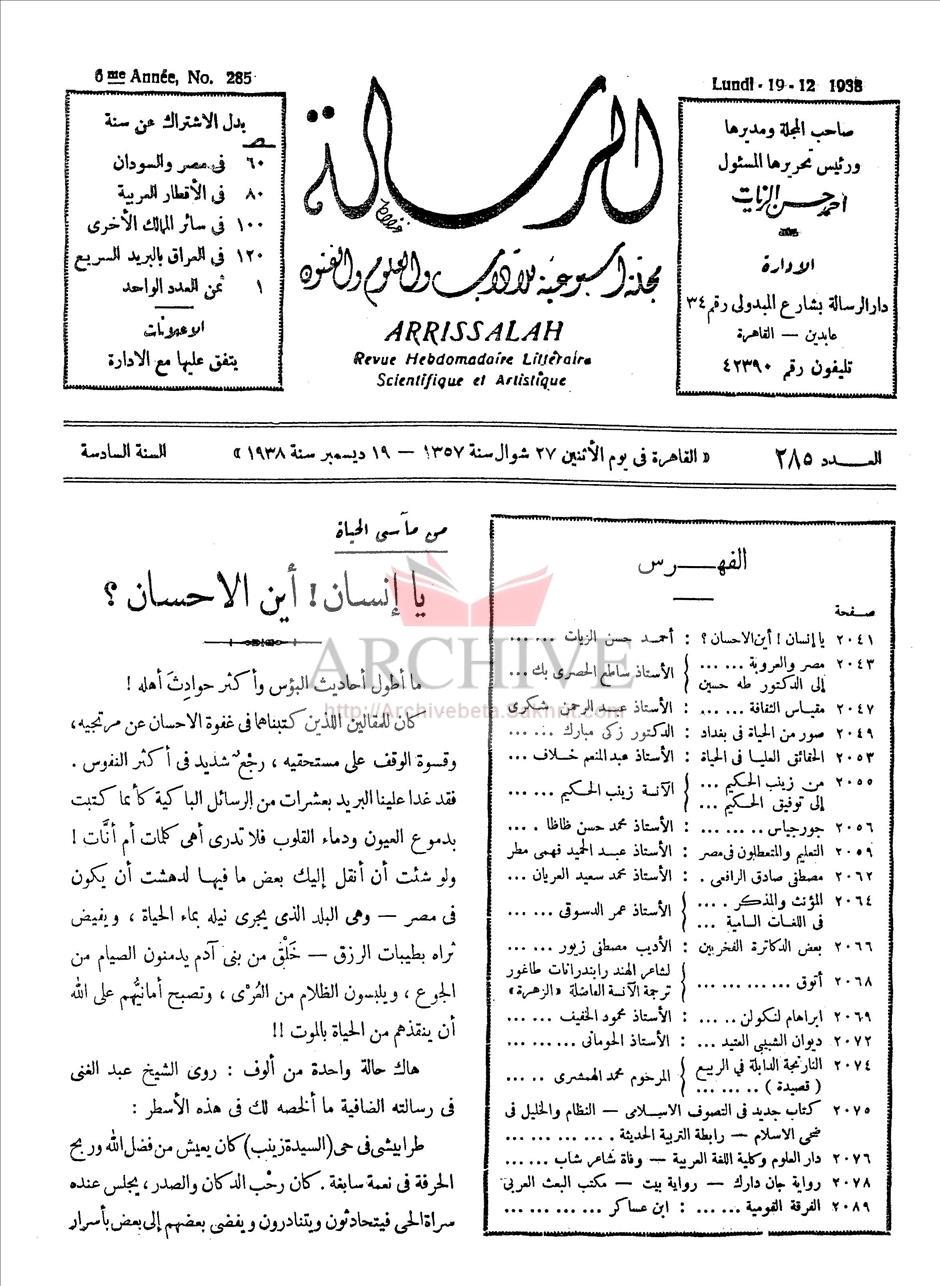 6me Année, No. 285
Lundi - 19 - 12 1938
صاحب المجلة ومديرها
ورئيس تحريرها المسئول
احمد حسن الزيات
الادارة
دار الرسالة بشارع المبدولى رقم ٣٤
عابدين — القاهرة
تليفون رقم ٤٢٣٩٠
الرسالة
مجلة أسبوعية للآداب والعلوم والفنون
ARRISSALAH
Revue Hebdomadaire Littéraire
Scientifique et Artistique
بدل الاشتراك عن سنة
٦٠ فى مصر والسودان
٨٠ فى الأقطار العربية
١٠٠ فى سائر الممالك الأخرى
١٢٠ فى العراق بالبريد السريع
١ ثمن العدد الواحد
الاعلانات
يتفق عليها مع الادارة
العـــدد ٢٨٥
« القاهرة فى يوم الأثنين ٢٧ شوال سنة ١٣٥٧ — ١٩ ديسمبر سنة ١٩٣٨ »
السنة السادسة
الفهـــرس
صفحة
٢٠٤١ يا إنسان ! أين الاحسان ؟ : أحمد حسن الزيات ... ...
٢٠٤٣ مصر والعروبة ... ...
إلى الدكتور طه حسين } الأستاذ ساطع الحصرى بك ... ...
٢٠٤٧ مقياس الثقافة ... ... : الأستاذ عبد الرحمن شكرى
٢٠٤٩ صور من الحياة فى بغداد : الدكتور زكى مبارك ... ...
٢٠٥٣ الحقائق العليا فى الحياة : الأستاذ عبد المنعم خلاف ...
٢٠٥٥ من زينب الحكيم ...
إلى توفيق الحكيم ... } الآنسة زينب الحكيم ... ...
٢٠٥٦ جورجياس ... ... ... : الأستاذ محمد حسن ظاظا . ...
٢٠٥٩ التعليم والمتعطلون فى مصر : الأستاذ عبد الحميد فهمى مطر
٢٠٦٢ مصطفى صادق الرافعى . : الأستاذ محمد سعيد العريان ...
٢٠٦٤ المؤنث والمذكر . ...
فى اللغات السامية ... } الأستاذ عمر الدسوقى . ...
٢٠٦٦ بعض الدكاترة الفخريين : الأديب مصطفى زيور ... ...
٢٠٦٨ أتوق ... ... ... ... } لشاعر الهند رابندرانات طاغور
ترجمة الآنسة الفاضلة « الزهرة »
٢٠٦٩ ابراهام لنكولن .. ... : الأستاذ محمود الخفيف ... ...
٢٠٧٢ ديوان الشبيبى العتيد ... : الأستاذ الحومانى ... ... ...
٢٠٧٤ النارنجة الذابلة في الربيع
( قصيدة ) .. ... ... } المرحوم محمد الهمشرى .. ...
٢٠٧٥ كتاب جديد فى التصوف الاسلامى — النظام والخليل فى
ضحى الاسلام — رابطة التربية الحديثة . ... ... ... ...
٢٠٧٦ دار العلوم وكلية اللغة العربية — وفاة شاعر شاب ... ...
٢٠٧٨ رواية جان دارك — رواية بيت — مكتب البعث العربى
٢٠٨٩ الفرقة القومية ... ... : ابن عساكر ... ... ... ...
من مآسى الحياة
يا إنسان ! أين الاحسان ؟
ما أطول أحاديث البؤس وأكثر حوادِثَ أهله !
كان للمقالين اللذين كتبناهما فى غفوة الاحسان عن مرتجيه،
وقسوة الوقف على مستحقيه ، رجْعٌ شديد فى أكثر النفوس .
فقد غدا علينا البريد بعشرات من الرسائل الباكية كأنما كتبت
بدموع العيون ودماء القلوب فلا تدرى أهى كلمات أم أنَّات !
ولو شئت أن أنقل إليك بعض ما فيها لدهشت أن يكون
فى مصر — وهى البلد الذى يجرى نيله بماء الحياة ، ويفيض
ثراه بطيبات الرزق — خَلْق من بنى آدم يدمنون الصيام من
الجوع ، ويلبسون الظلام من العُرْى ، وتصبح أمانيُّهم على الله
أن ينقذهم من الحياة بالموت !!
هاك حالة واحدة من ألوف : روى الشيخ عبد الغنى
فى رسالته الضافية ما ألخصه لك فى هذه الأسطر :
طرابيشى فى حى (السيدة زينب) كان يعيش من فضل الله وربح
الحرفة فى نعمة سابغة . كان رحْب الدكان والصدر ، يجلس عنده
سراة الحى فيتحادثون ويتنادرون ويفضى بعضهم إلى بعض بأسرار
ARCHIVE
http://Archivebeta.Sakhrit.com